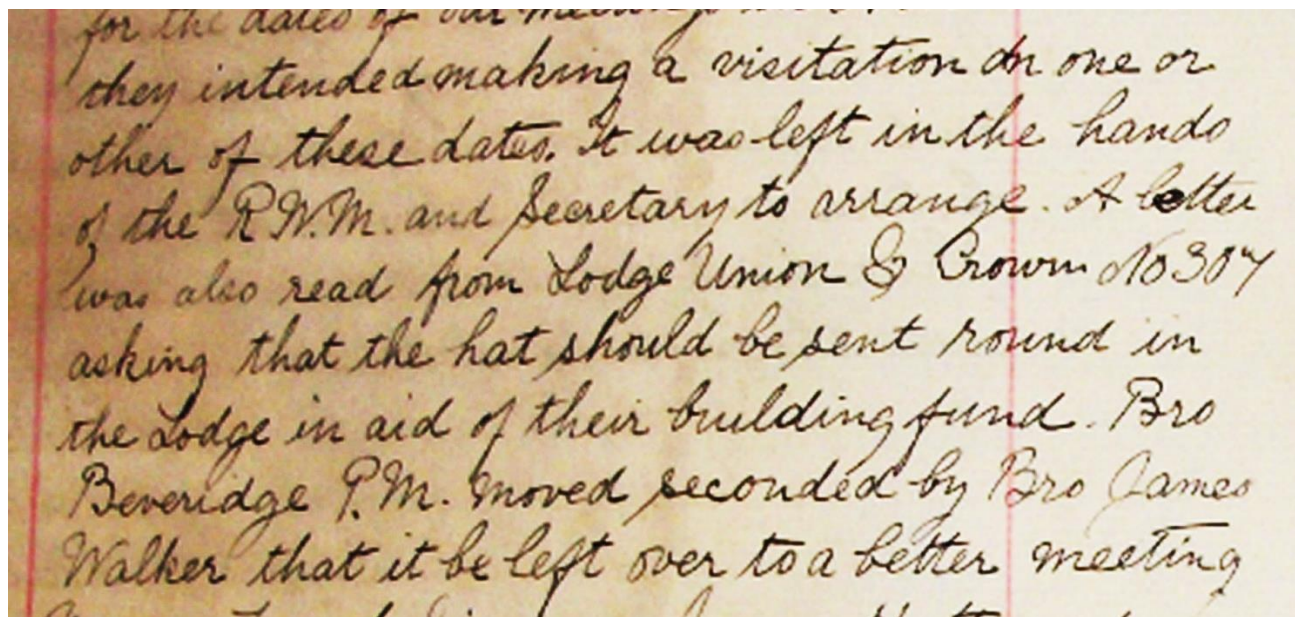 for the dates of our meetings
they intended making a visitation on one or
other of these dates. It was left in the hands
of the R.W.M. and Secretary to arrange. A letter
was also read from Lodge Union & Crown No 307
asking that the hat should be sent round in
the Lodge in aid of their building fund. Bro
Beveridge P.M. moved seconded by Bro James
Walker that it be left over to a better meeting